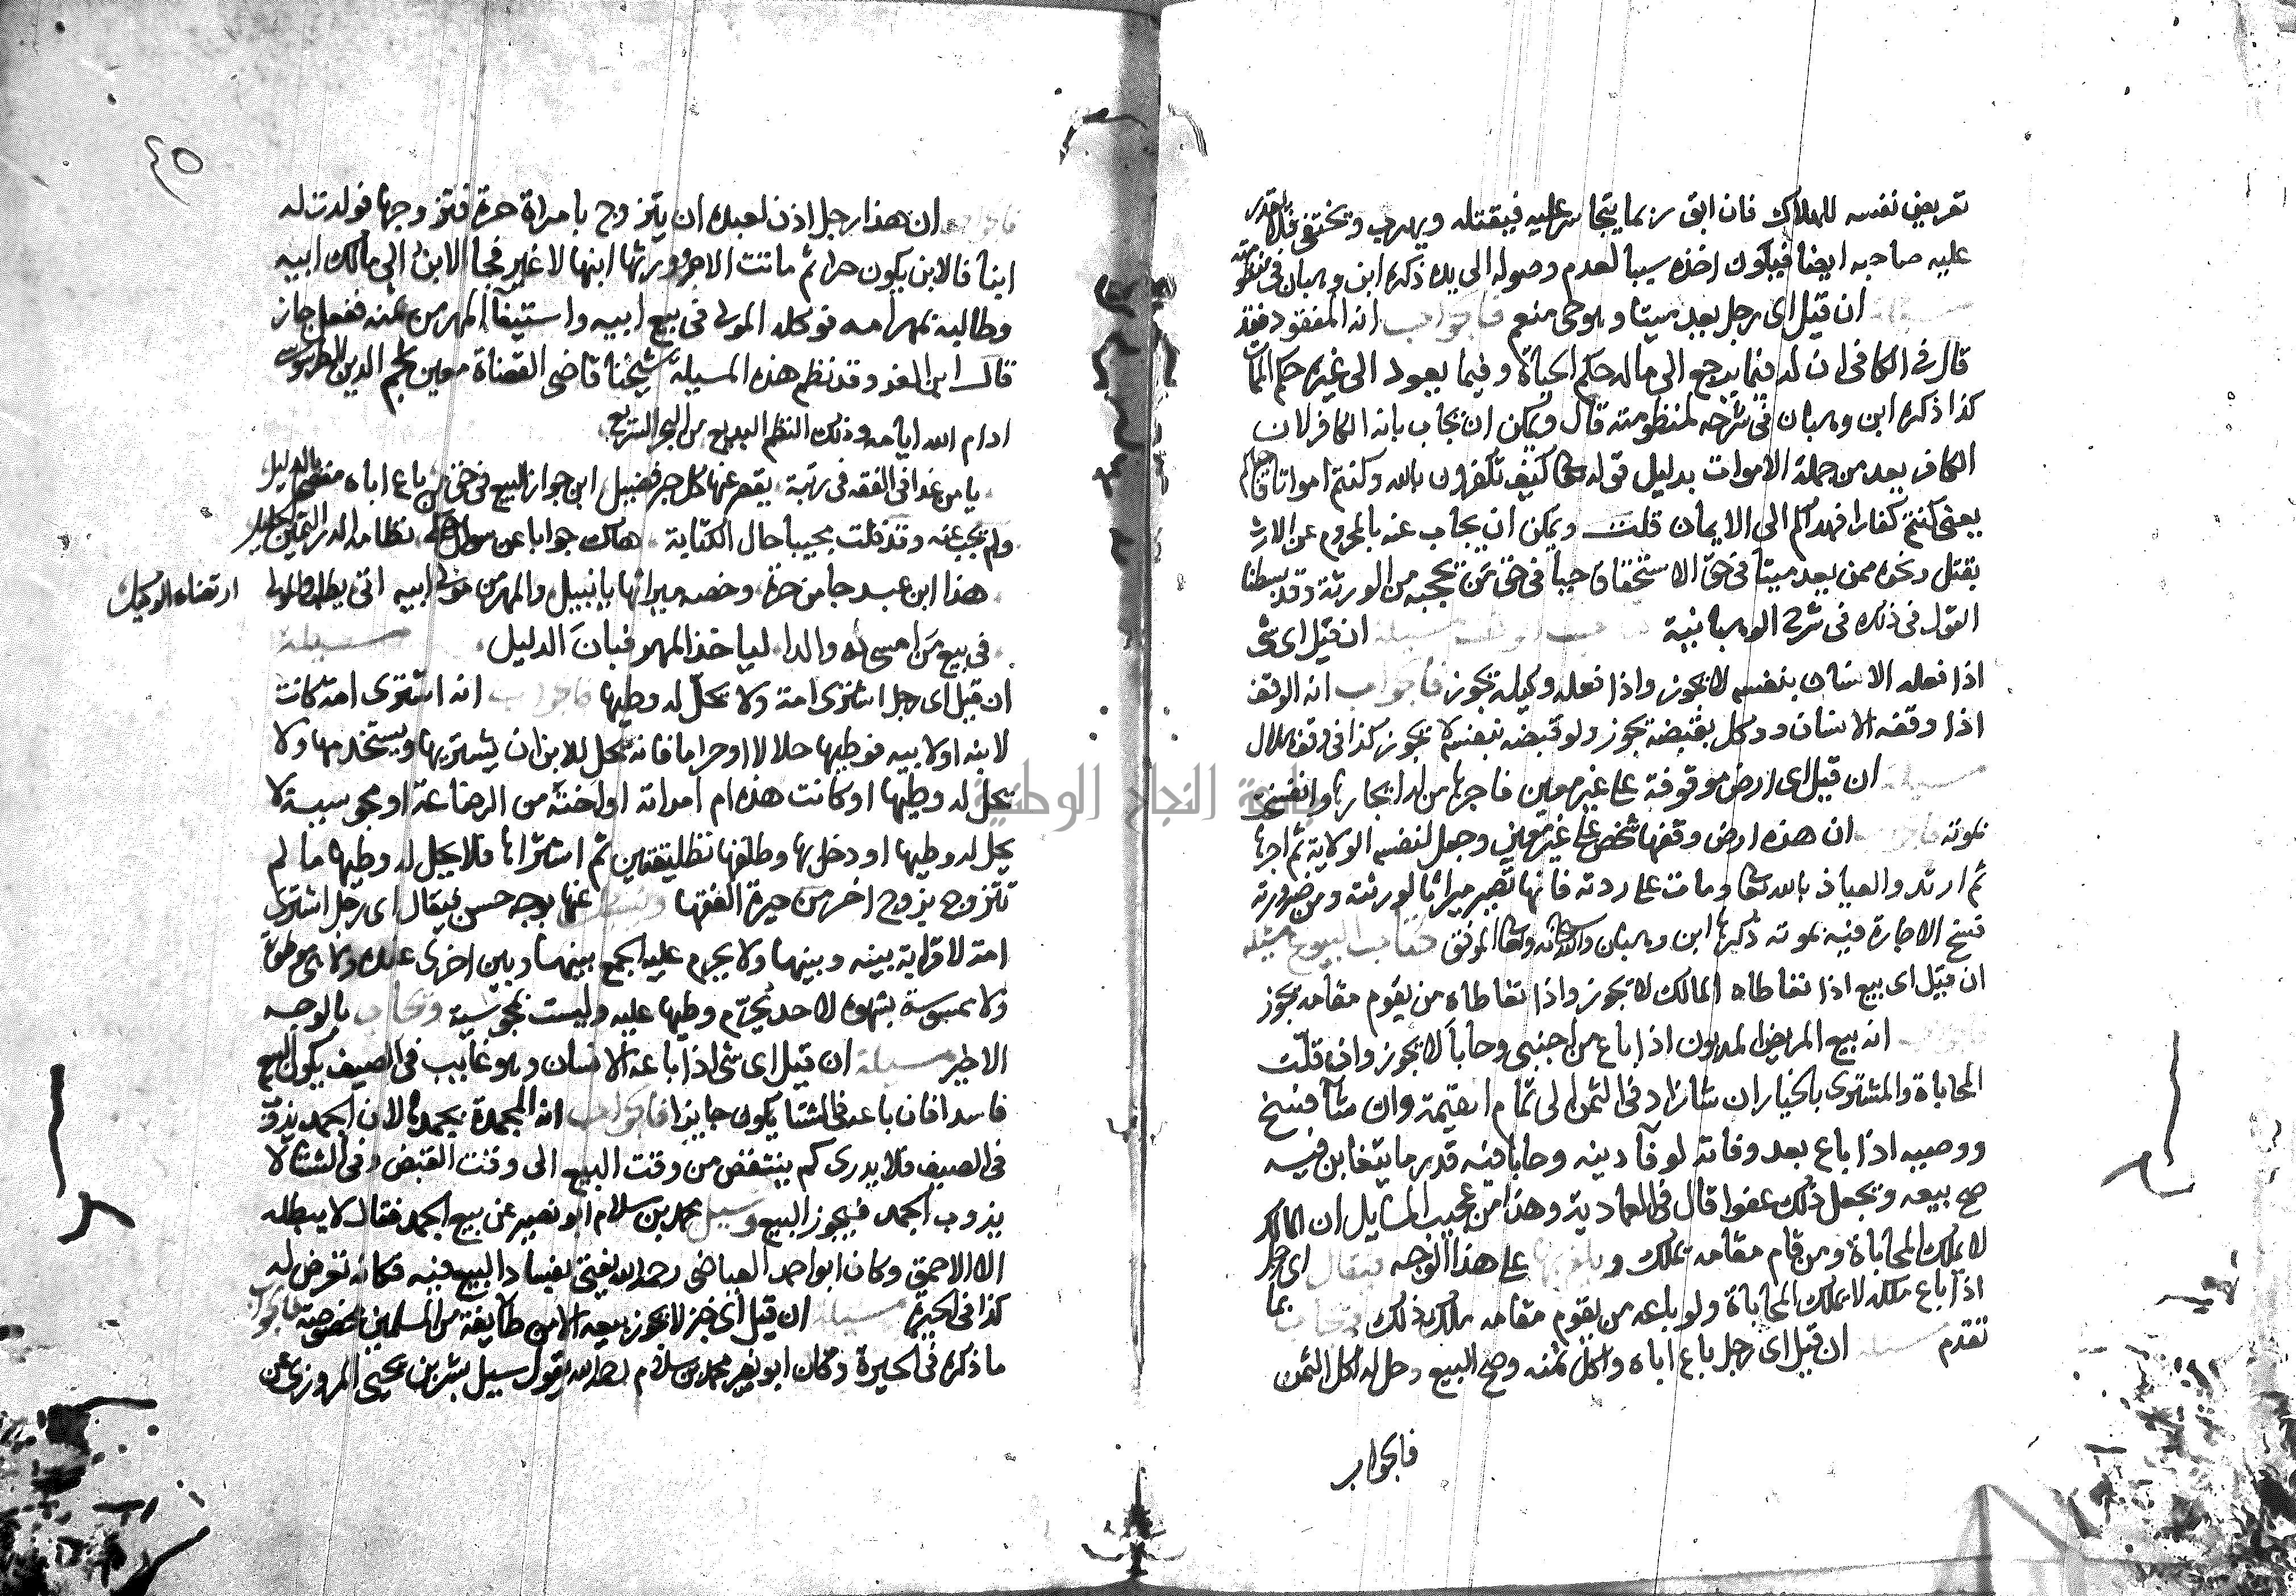 تعريض نفسه للهلاك فان ابق ربما يتجاسر عليه فيقتله ويهرب ويختفي فلا يقدر
عليه صاحبه ايضا فيكون اخذه سببا لعدم وصوله الى يده ذكره ابن وهبان في منظومته
مسيلة ان قيل اى رجل يعد ميتا وهو حى منعم فالجواب انه المفقود فقد
قال فى الكافى ان له فيما يرجع الى ماله حكم الحياة وفيما يعود الى غيره حكم الممات
كذا ذكره ابن وهبان فى شرحه لمنظومته قال ويمكن ان يجاب بانه الكافر لان
الكافر يعد من جملة الاموات بدليل قوله تعالى كيف تكفرون بالله وكنتم امواتا فاحياكم
يعنى كنتم كفارا فهداكم الى الايمان قلت ويمكن ان يجاب عنه بالمحروم عن الارث
بقتل ونحوه ممن يعد ميتا فى حق الاستحقاق حيا فى حق من يحجبه من الورثة وقد بسطنا
القول فى ذلك فى شرح الوهبانية كتاب الوقف مسيلة ان قيل اى شى
اذا فعله الانسان بنفسه لا يجوز واذا فعله وكيله يجوز فالجواب انه الوقف
اذا وقفه الانسان ووكل بقبضه يجوز ولو قبضه بنفسه لا يجوز كذا فى وقف هلال
مسيلة ان قيل اى ارض موقوفة على غير معين فاجرها من له ايجارها وانفسخ
بموته فالجواب ان هذه ارض وقفها شخص على غير معين وجعل لنفسه الولاية ثم اجرها
ثم ارتد والعياذ بالله تعالى ومات على ردته فانها تصير ميراثا لورثته ومن ضرورته
فسخ الاجارة فيه بموته ذكرها ابن وهبان والله سبحانه وتعالى الموفق كتاب البيوع مسيلة
ان قيل اى بيع اذا تعاطاه المالك لا يجوز واذا تعاطاه من يقوم مقامه يجوز
فالجواب انه بيع المريض المديون اذا باع من اجنبى وحابا لا يجوز وان قلت
المحاباة والمشترى بالخيار ان شا زاد فى الثمن الى تمام القيمة وان شا فسخ
ووصيه اذا باع بعد وفاته لوفا دينه وحابا فيه قدر ما يتغابن فيه
صح بيعه ويجعل ذلك عفوا قال فى العمادية وهذا من عجيب المسايل ان المالك
لا يملك المحاباة ومن قام مقامه يملك ويلغز بها على هذا الوجه فيقال اى رجل
اذا باع ملكه لا يملك المحاباة ولو باعه من يقوم مقامه ملك ذلك ويجاب بما
تقدم مسيلة ان قيل اى رجل باع اباه واكل ثمنه وصح البيع وحل له اكل الثمن
فالجواب
٤٥
فالجواب ان هذا رجل اذن لعبده ان يتزوج بامراة حرة فتزوجها فولدت له
ابنا فالابن يكون حرا ثم ماتت الام وورثها ابنها لا غير فجا الابن الى مالك ابيه
وطالبه بمهر امه فوكله المولى فى بيع ابيه واستيفا المهر من ثمنه ففعل جاز
قال ابن العز وقد نظم هذه المسيلة شيخنا قاضى القضاة معين نجم الدين الطرسوسى
ادام الله ايامه وذلك النظم البديع من البحر السريع
يا من غدا فى الفقه فى رتبة يقصر عنها كل حبر فضيل ابن جواز البيع فى حق من باع اباه مفتيها بالدليل
ولم يجب عنه وقد قلت مجيبا حال الكتابة هاك جوابا عن سوال حكى نظامه الدر الثمين الجليل
هذا ابن عبد جا من حرة وخصه ميراثها يا نبيل والمهر من مولى ابيه اتى يطلب والمولى ارتضاه الوكيل
فى بيع من امسى له والدا لياخذ المهر فبان الدليل مسيلة
ان قيل اى رجل اشترى امة ولا تحل له وطيها فالجواب انه اشترى امة كانت
لابنه او لابيه فوطيها حلالا او حراما فانه تحل للابن ان يشتريها ويستخدمها ولا
تحل له وطيها او كانت هذه ام امراته او اخته من الرضاعة او مجوسية لا
يحل له وطيها او دخل بها وطلقها تطليقتين ثم اشتراها فلا يحل له وطيها ما لم
تتزوج بزوج اخر من حيرة الفقها ويسال عنها بوجه حسن فيقال اى رجل اشترى
امة لا قرابة بينه وبينها ولا يحرم عليه الجمع بينها وبين اخرى عنده ولا هى موطوة
ولا ممسوسة بشهوه لاحد يحرم وطيها عليه وليست بمجوسية ويجاب بالوجه
الاخير مسيلة ان قيل اى شى اذا باعه الانسان وهو غايب فى الصيف يكون البيع
فاسدا فان باعه فى الشتا يكون جايزا فالجواب انه المجمدة بجمدها لان الجمد يذوب
فى الصيف فلا يدرى كم ينتقض من وقت البيع الى وقت القبض وفى الشتا لا
يذوب الجمد فيجوز البيع وسيل محمد بن سلام ابو نصير عن بيع الجمد فقال لا يبطله
الا الاحمق وكان ابو احمد العياضى رحمه الله يفتى بفساد البيع فيه فكانه تعرض له
كذا فى الحيرة مسيلة ان قيل اى خبز لا يجوز بيعه الا من طايفة من المسلمين مخصوصة فالجواب
ما ذكره فى الحيرة وكان ابو نصر محمد بن سلام رحمه الله يقول سيل بشر بن يحيى المروزى عن
جامعة النجاح الوطنية